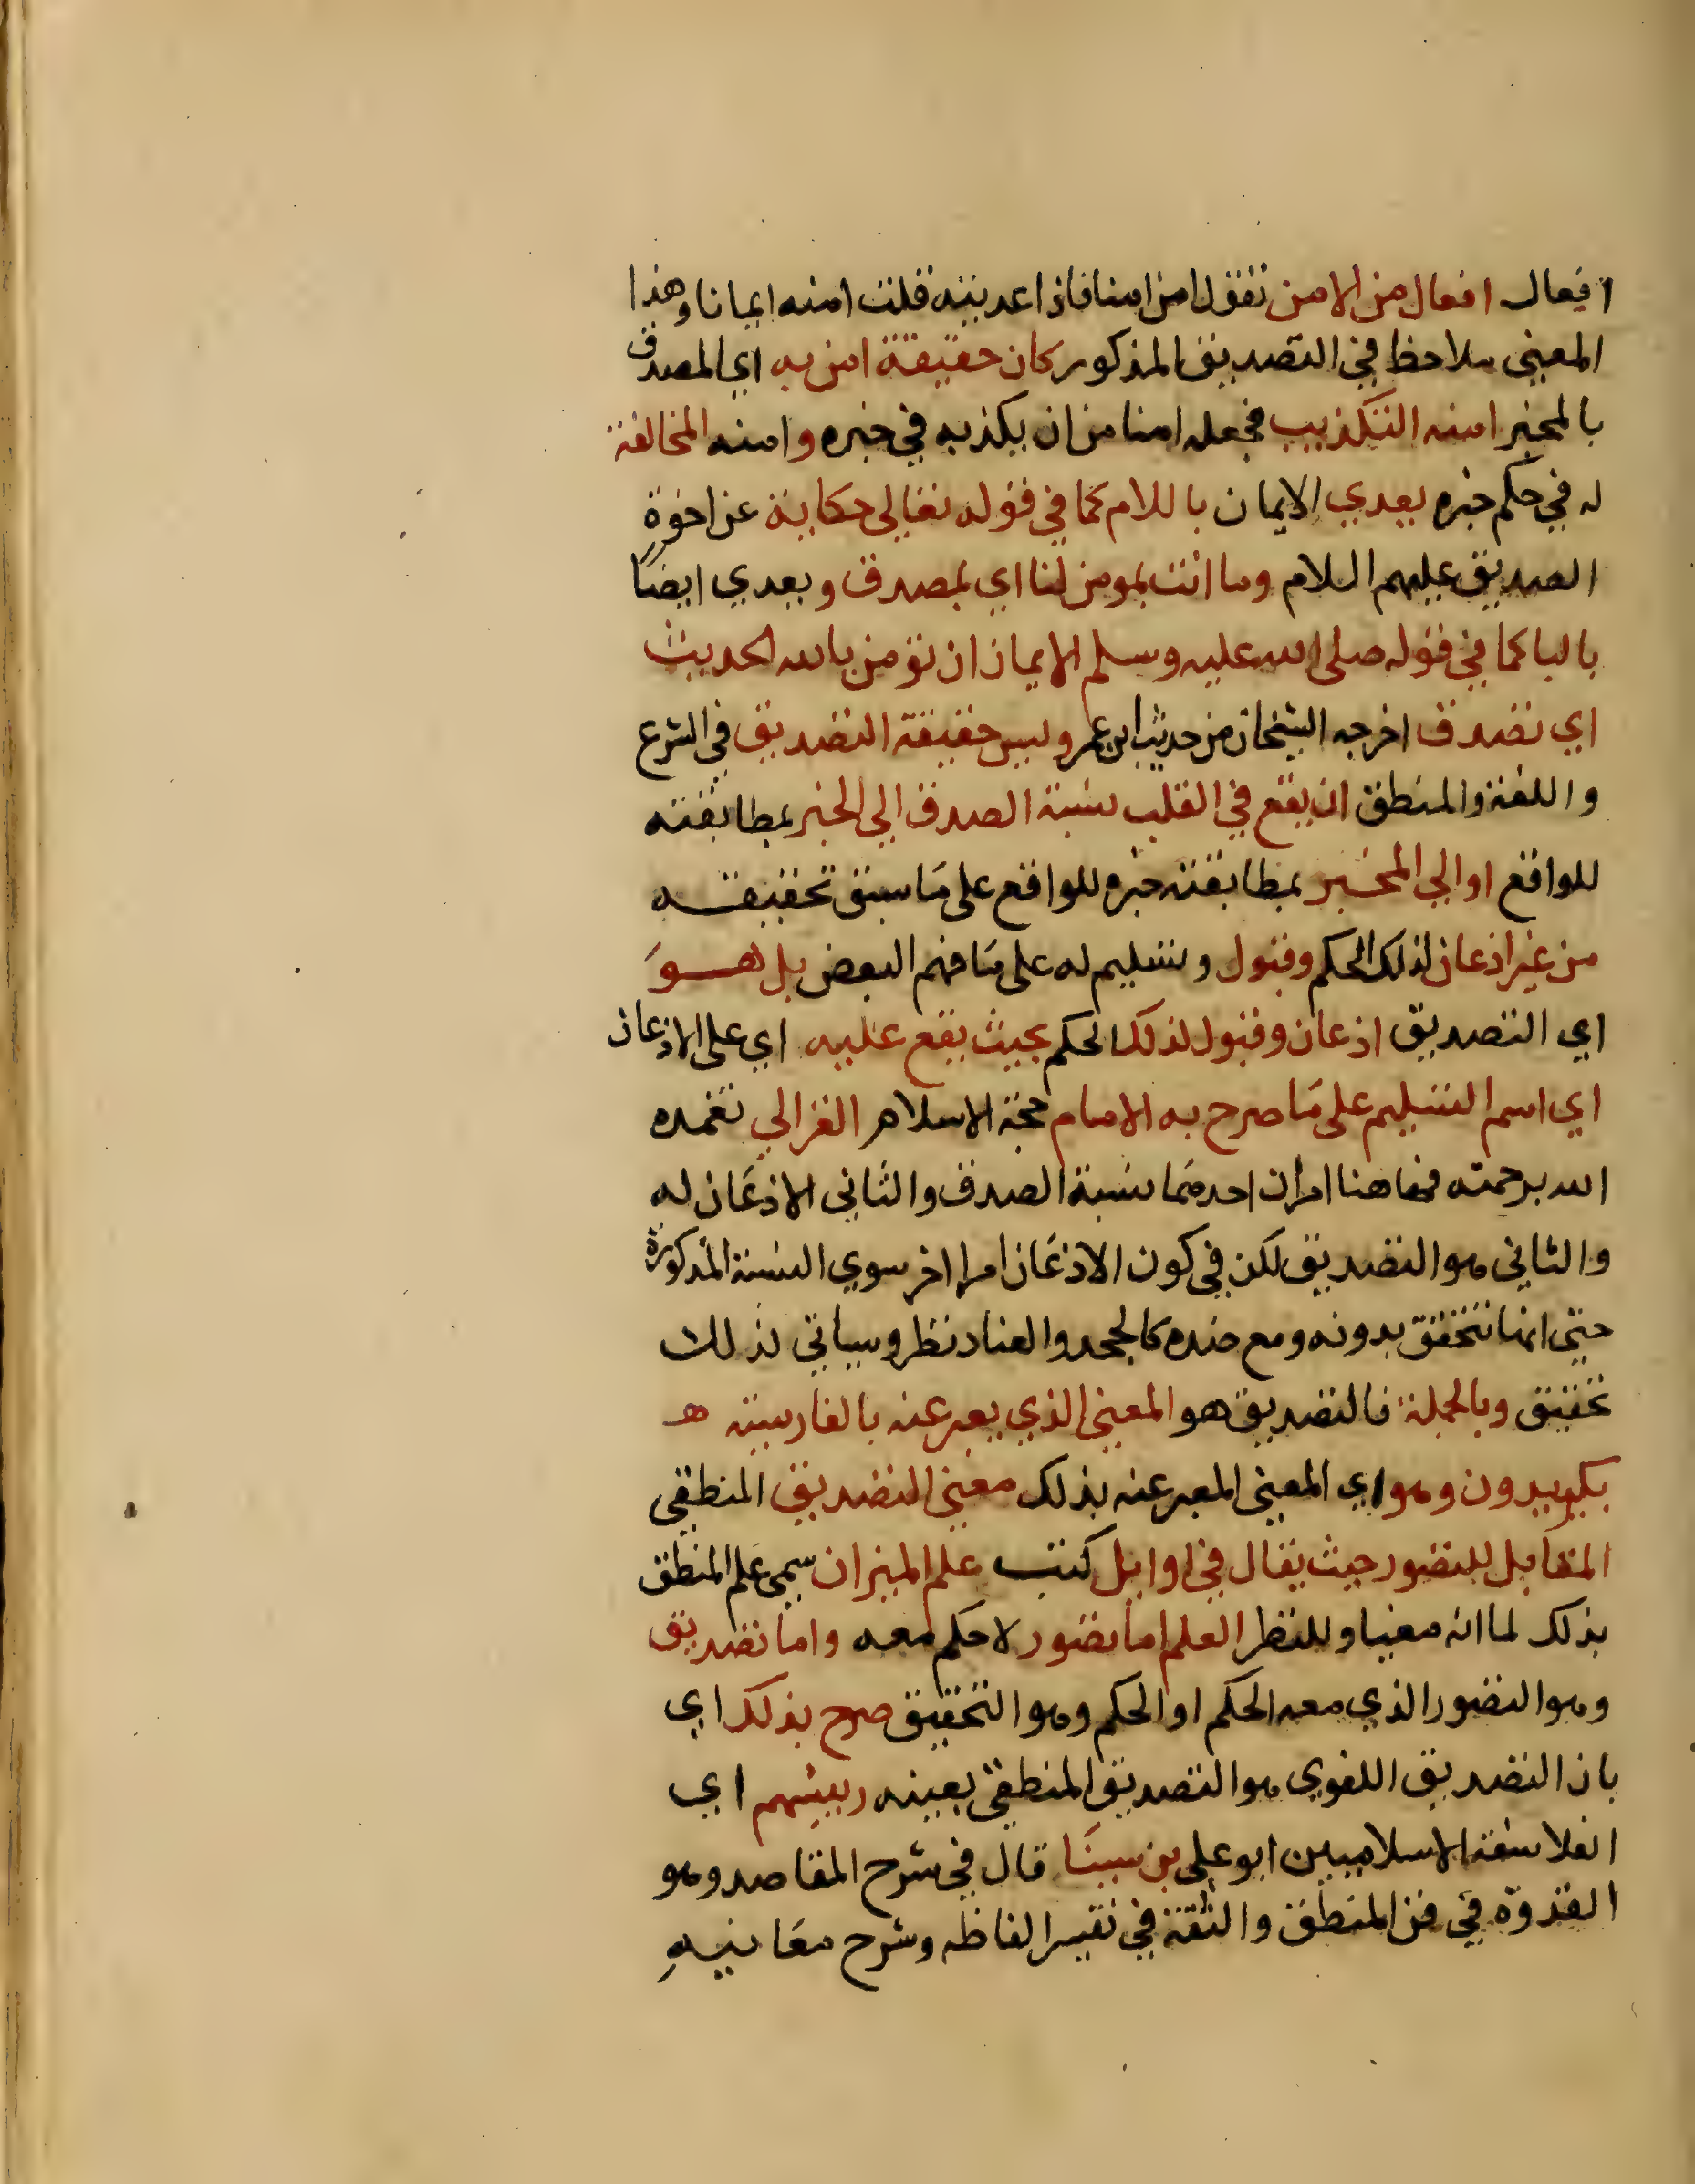 افعال افعال من الامن تقول امن امنا فاذا عديته قلت امنه ايمانا وهذا
المعنى ملاحظ في التصديق المذكور كان حقيقة امن به اي المصدق
بالمخبر امنه التكذيب فجعله امنا من ان يكذبه في خبره وامنه المخالفة
له في حكم خبره يعدي الايمان باللام كما في قوله تعالى حكاية عن اخوة
الصديق عليهم السلام وما انت بمومن لنا اي بمصدق ويعدي ايضا
بالبا كما في قوله صلى الله عليه وسلم الايمان ان تؤمن بالله الحديث
اي تصدق اخرجه الشيخان من حديث ابن عمر وليس حقيقة التصديق في الشرع
واللغة والمنطق ان يقع في القلب نسبة الصدق الي الخبر بمطابقته
للواقع او الي المخبر بمطابقته خبره للواقع على ما سبق تحقيقه
من غير اذعان لذلك الحكم وقبول وتسليم له على ما فهم البعض بل هو
اي التصديق اذعان وقبول لذلك الحكم بحيث يقع عليه اي على الاذعان
اي اسم التسليم على ما صرح به الامام حجة الاسلام الغزالي تغمده
الله برحمته فهاهنا امران احدهما نسبة الصدق والثاني الاذعان له
والثاني هو التصديق لكن في كون الاذعان امرا اخر سوي النسبة المذكورة
حتى انها تتحقق بدونه ومع ضده كالجحد والعناد نظر وسياتي لذلك
تحقيق وبالجملة فالتصديق هو المعنى الذي يعبر عنه بالفارسية هـ
بكرويدون وهو اي المعنى المعبر عنه بذلك معنى التصديق المنطقي
المقابل للتصور حيث يقال في اوايل كتب علم الميزان سمى علم المنطق
بذلك لما انه معيار للنظر العلم اما تصور لا حكم معه واما تصديق
وهو التصور الذي معه الحكم او الحكم وهو التحقيق صرح بذلك اي
بان التصديق اللغوي هو التصديق المنطقي بعينه رييسهم اي
الفلاسفة الاسلاميين ابو على بن سينا قال في شرح المقاصد وهو
القدوة في فن المنطق والثقة في تفسير الفاظه وشرح معانيه